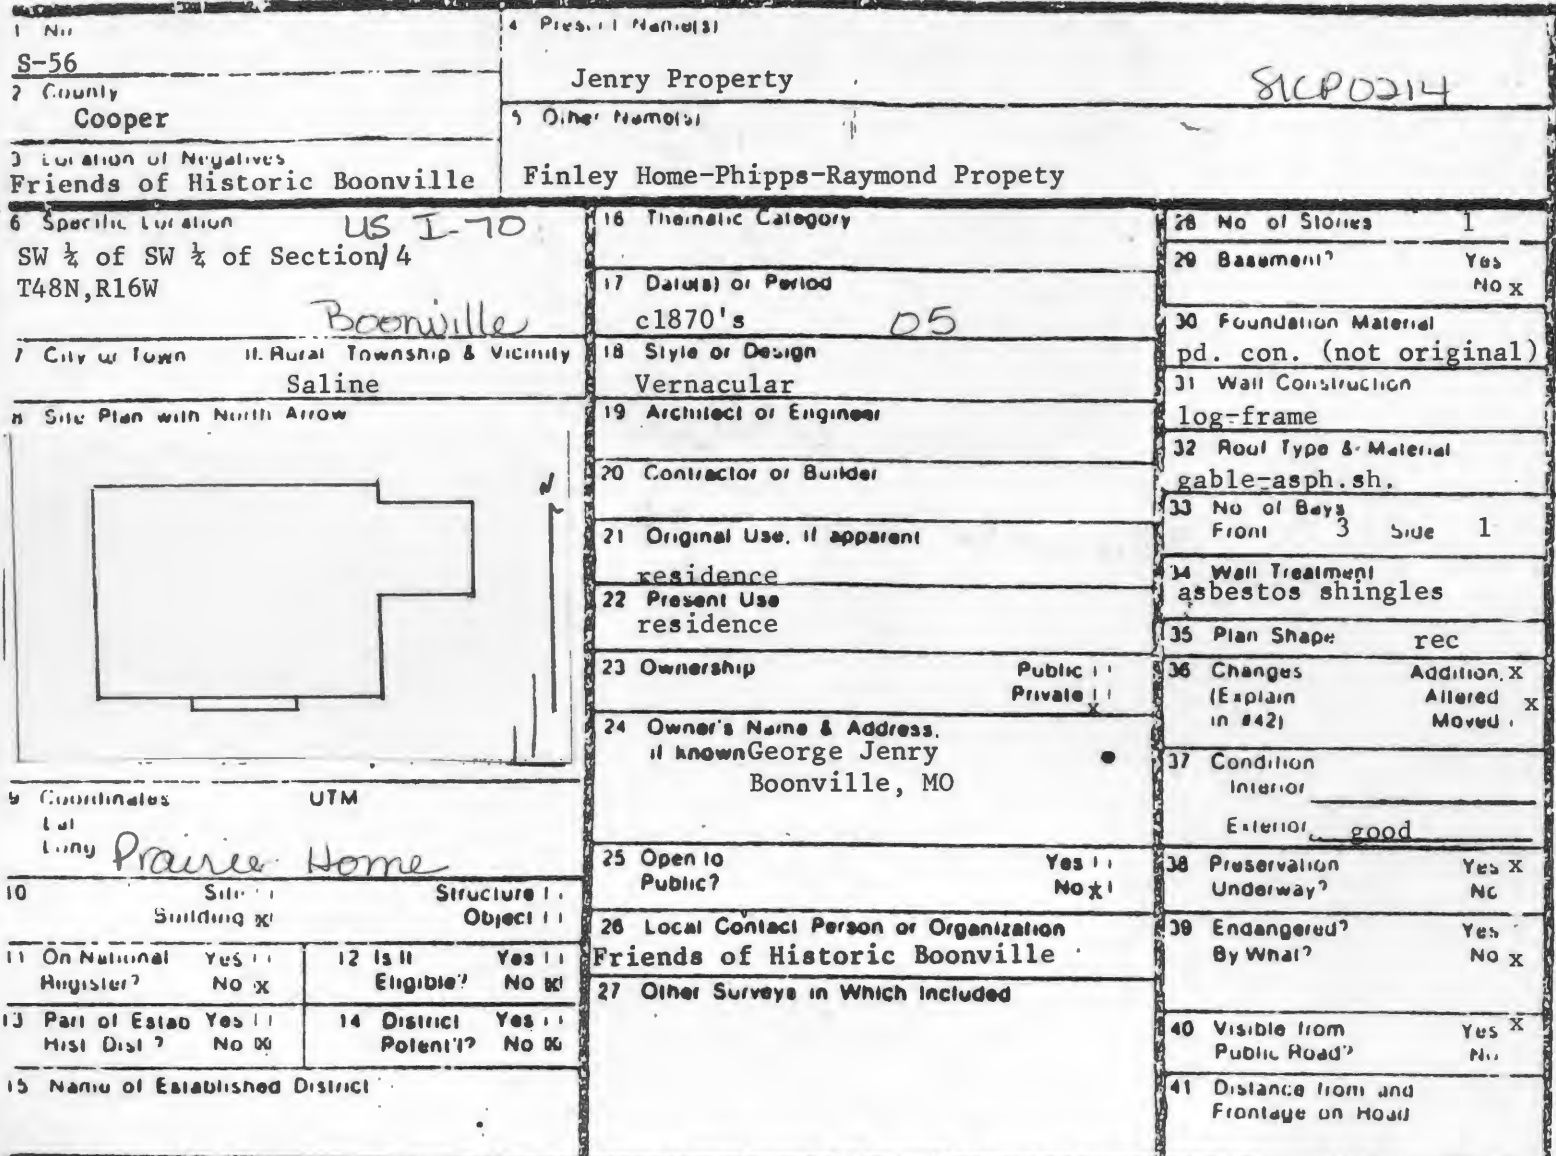 1 No
S-56
2 County
Cooper
3 Location of Negatives
Friends of Historic Boonville
4 Present Name(s)
Jenry Property
SICP0214
5 Other Name(s)
Finley Home-Phipps-Raymond Propety
6 Specific Location
US I-70
SW ¼ of SW ¼ of Section 4
T48N,R16W
Boonville
7 City or Town If Rural Township & Vicinity
Saline
8 Site Plan with North Arrow
N
9 Coordinates UTM
Lat
Long
Prairie Home
10 Site Structure
Building x Object
11 On National Yes
Register? No x
12 Is It Yes
Eligible? No x
13 Part of Estab Yes
Hist Dist? No x
14 District Yes
Potent'l? No x
15 Name of Established District
16 Thematic Category
17 Date(s) or Period
c1870's 05
18 Style or Design
Vernacular
19 Architect or Engineer
20 Contractor or Builder
21 Original Use, if apparent
residence
22 Present Use
residence
23 Ownership Public
Private x
24 Owner's Name & Address,
if known George Jenry
Boonville, MO
25 Open to Yes
Public? No x
26 Local Contact Person or Organization
Friends of Historic Boonville
27 Other Surveys in Which Included
28 No of Stories 1
29 Basement? Yes
No x
30 Foundation Material
pd. con. (not original)
31 Wall Construction
log-frame
32 Roof Type & Material
gable-asph.sh.
33 No of Bays
Front 3 Side 1
34 Wall Treatment
asbestos shingles
35 Plan Shape rec
36 Changes Addition x
(Explain Altered x
in #42) Moved
37 Condition
Interior
Exterior good
38 Preservation Yes x
Underway? No
39 Endangered? Yes
By What? No x
40 Visible from Yes x
Public Road? No
41 Distance from and
Frontage on Road